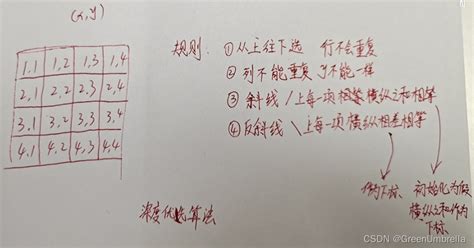 (x,y)
1,1 1,2 1,3 1,4
2,1 2,2 2,3 2,4
3,1 3,2 3,3 3,4
4,1 4,2 4,3 4,4
规则: ①从上往下选 行不会重复
②列不能重复 y不能一样
③斜线/上每一项 横纵之和相等
④反斜线\上每一项横纵相差相等
作为下标
初始化为假
横纵之和作为
下标
深度优先算法
CSDN @GreenUmbrella